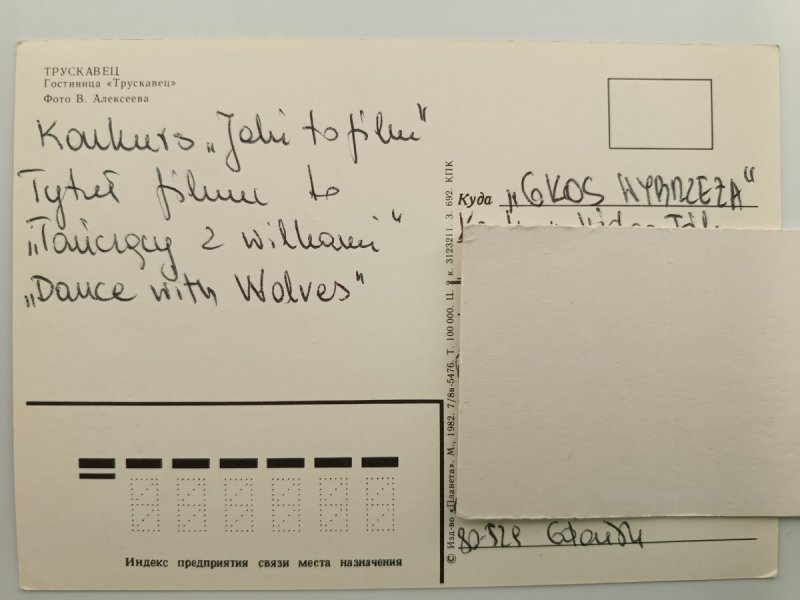 ТРУСКАВЕЦ
Гостиница «Трускавец»
Фото В. Алексеева
Konkurs „Jaki to film"
Tytuł filmu to
„Tańczący z wilkami"
„Dance with Wolves"
Куда „GŁOS WYBRZEŻA"
80-329 Gdańsk
Индекс предприятия связи места назначения
© Изд-во «Планета». М., 1982. 7/8в-5476. Т. 100 000. Ц. к. 3123211. З. 692. КПК